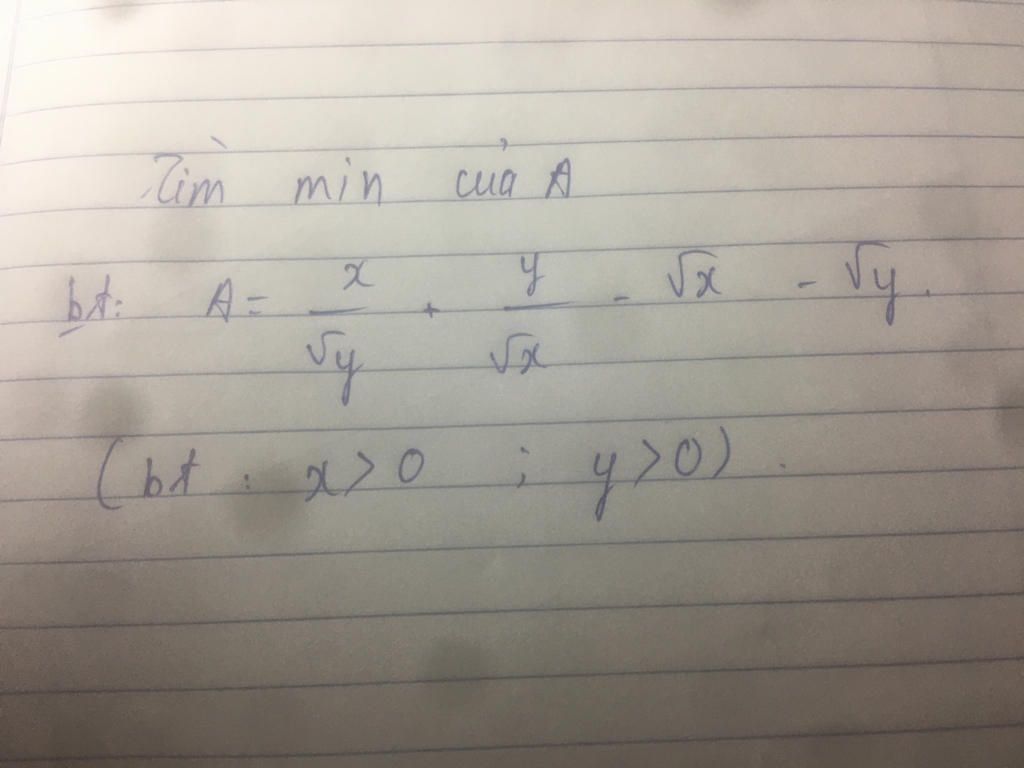 Tìm min của A
bt: A = x/√y + y/√x - √x - √y.
(bt : x > 0 ; y > 0).